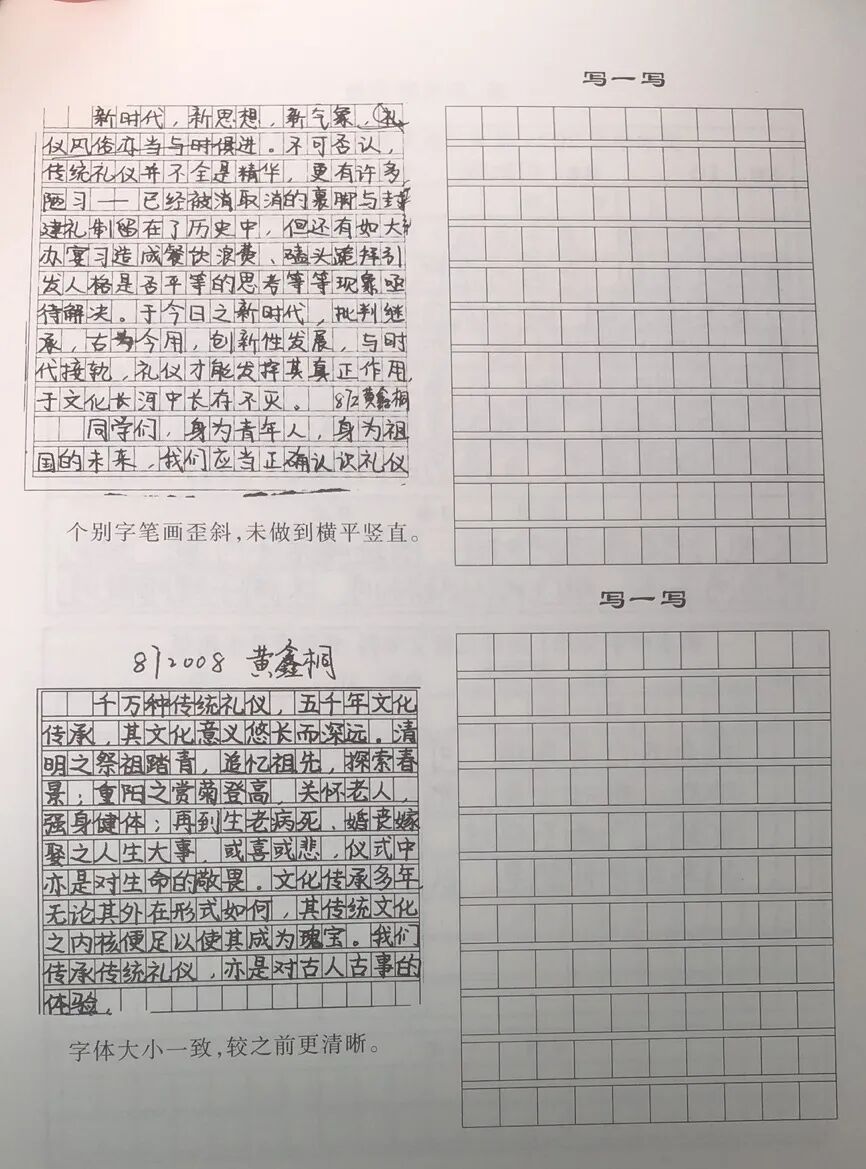 写一写
新时代，新思想，新气象，礼
仪风俗亦当与时俱进。不可否认，
传统礼仪并不全是精华，更有许多
陋习——已经被消取消的裹脚与封
建礼制留在了历史中，但还有如大
办宴习造成餐饮浪费、磕头跪拜引
发人格是否平等的思考等等现象亟
待解决。于今日之新时代，批判继
承，古为今用，创新性发展，与时
代接轨，礼仪才能发挥其真正作用，
于文化长河中长存不灭。 812黄鑫桐
同学们，身为青年人，身为祖
国的未来，我们应当正确认识礼仪
个别字笔画歪斜，未做到横平竖直。
写一写
812008 黄鑫桐
千万种传统礼仪，五千年文化
传承，其文化意义悠长而深远。清
明之祭祖踏青，追忆祖先，探索春
景；重阳之赏菊登高，关怀老人，
强身健体；再到生老病死、婚丧嫁
娶之人生大事，或喜或悲，仪式中
亦是对生命的敬畏。文化传承多年，
无论其外在形式如何，其传统文化
之内核便足以使其成为瑰宝。我们
传承传统礼仪，亦是对古人古事的
体验。
字体大小一致，较之前更清晰。